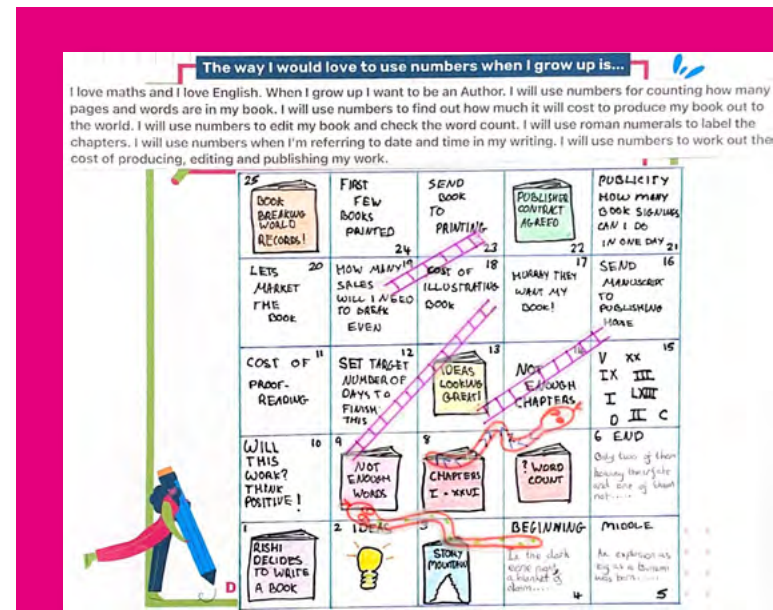 The way I would love to use numbers when I grow up is...
I love maths and I love English. When I grow up I want to be an Author. I will use numbers for counting how many
pages and words are in my book. I will use numbers to find out how much it will cost to produce my book out to
the world. I will use numbers to edit my book and check the word count. I will use roman numerals to label the
chapters. I will use numbers when I'm referring to date and time in my writing. I will use numbers to work out the
cost of producing, editing and publishing my work.
25
BOOK
BREAKING
WORLD
RECORDS!
FIRST
FEW
BOOKS
PRINTED
24
SEND
BOOK
TO
PRINTING
23
PUBLISHER
CONTRACT
AGREED
22
PUBLICITY
HOW MANY
BOOK SIGNINGS
CAN I DO
IN ONE DAY 21
LETS 20
MARKET
THE
BOOK
HOW MANY 19
SALES
WILL I NEED
TO BREAK
EVEN
COST OF 18
ILLUSTRATING
BOOK
17
HURRAY THEY
WANT MY
BOOK!
SEND 16
MANUSCRIPT
TO
PUBLISHING
COST OF 11
PROOF-
READING
SET TARGET 12
NUMBER OF
DAYS TO
FINISH
THIS
13
IDEAS
LOOKING
GREAT!
NOT 14
ENOUGH
CHAPTERS
15
V XX
IX III
I LXIII
D II C
WILL 10
THIS
WORK?
THINK
POSITIVE!
9
NOT
ENOUGH
WORDS
8
CHAPTERS
I - XXVI
7
? WORD
COUNT
6 END
Only two of them
and one of them
not.....
1
RISHI
DECIDES
TO WRITE
A BOOK
2 IDEAS
3
STORY
MOUNTAIN
BEGINNING
In the dark
a blanket of
4
MIDDLE
An explosion as
big as a
was
5
D